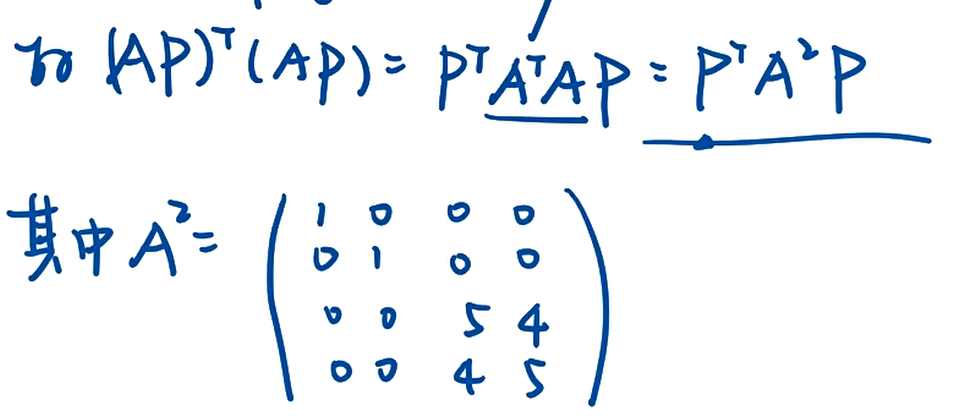 而 (AP)ᵀ(AP) = PᵀAᵀAP = PᵀA²P
其中 A² =
1 0 0 0
0 1 0 0
0 0 5 4
0 0 4 5